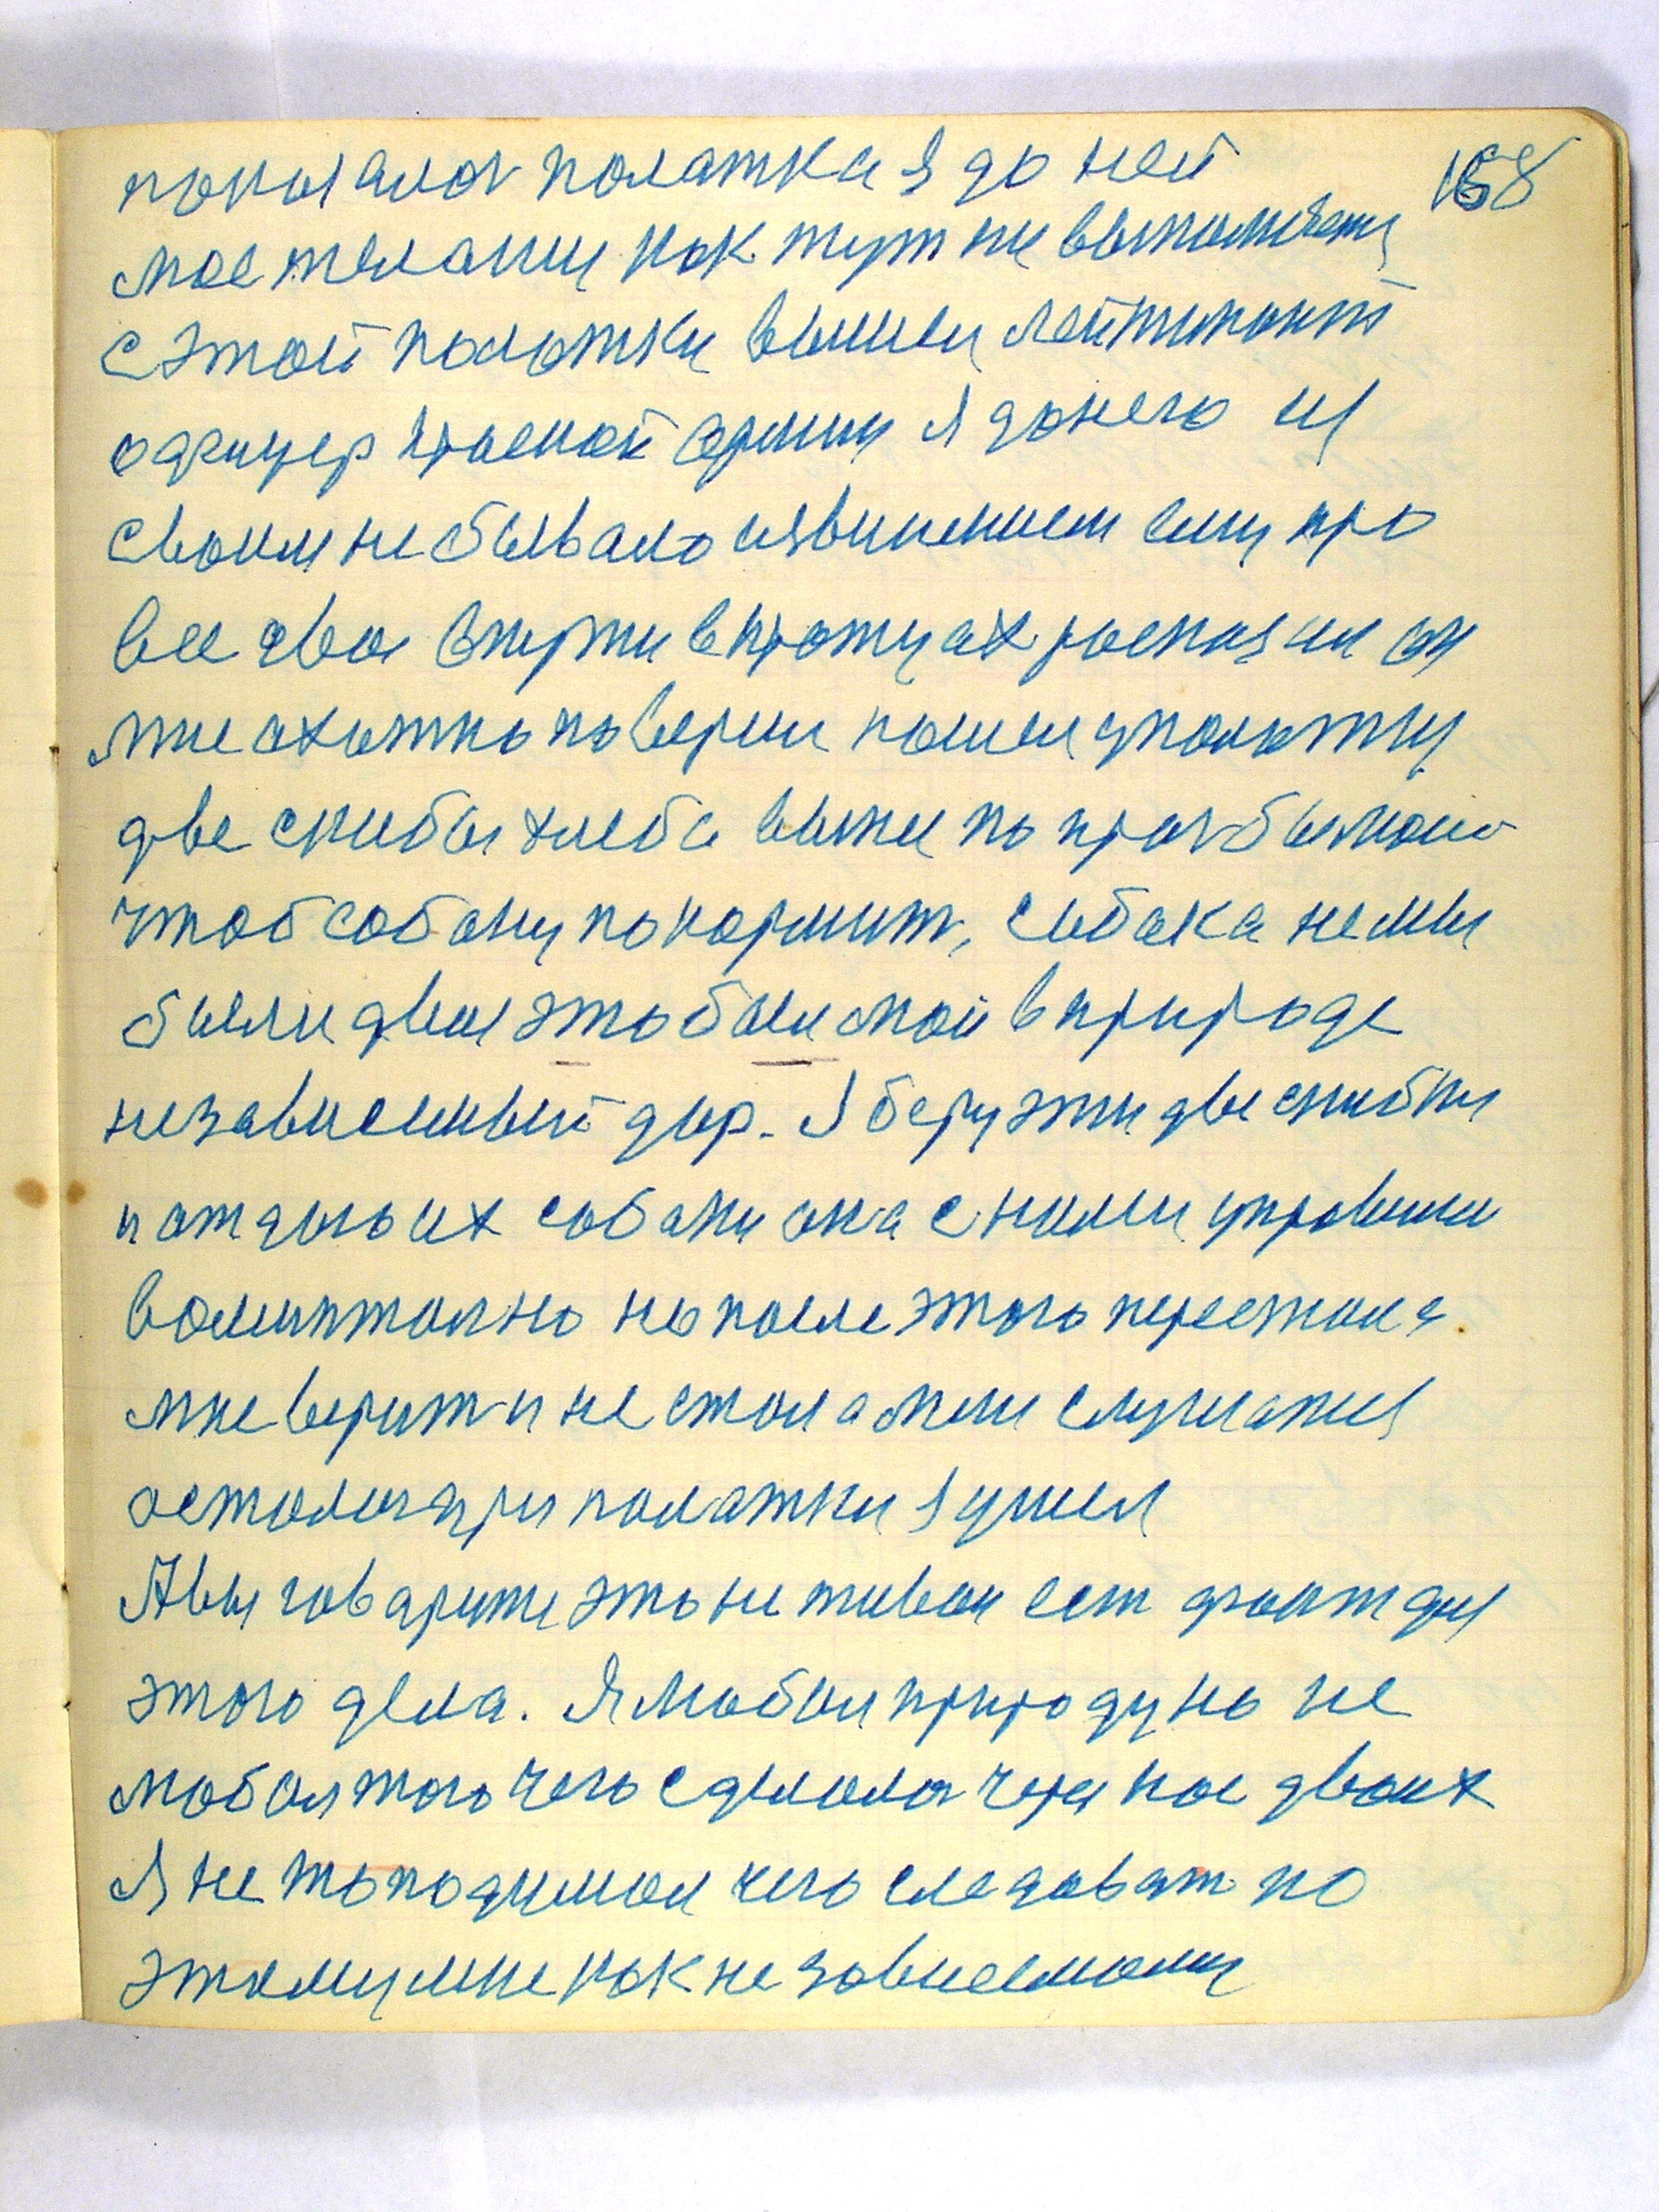 158
показалась палатка я до ней
мое желании как тут не выполнети
с этой палатки вышел лейтинант
офицер красной армии я донего из
своим небывало извинением ему про
все свои в кротцах росказал он
мне охотно поверил пошел у палатку
две скибы хлеба вынес по прозбы моей
чтоб собаку покормит, собака немы
были двои это был мой в природе
независемый дар. Я беру эти две скибки
и отдаю их собаки она с ними управилис
но после этого перестала
мне верит и не стала мене слушатис
осталась при палатки я ушел
А вы говарите это не живои ест факт для
этого дела. Я любил природу но не
любил того чего сделалось через нас двоих
Я не то подумал чего следоват по
этому мне как не зависемому